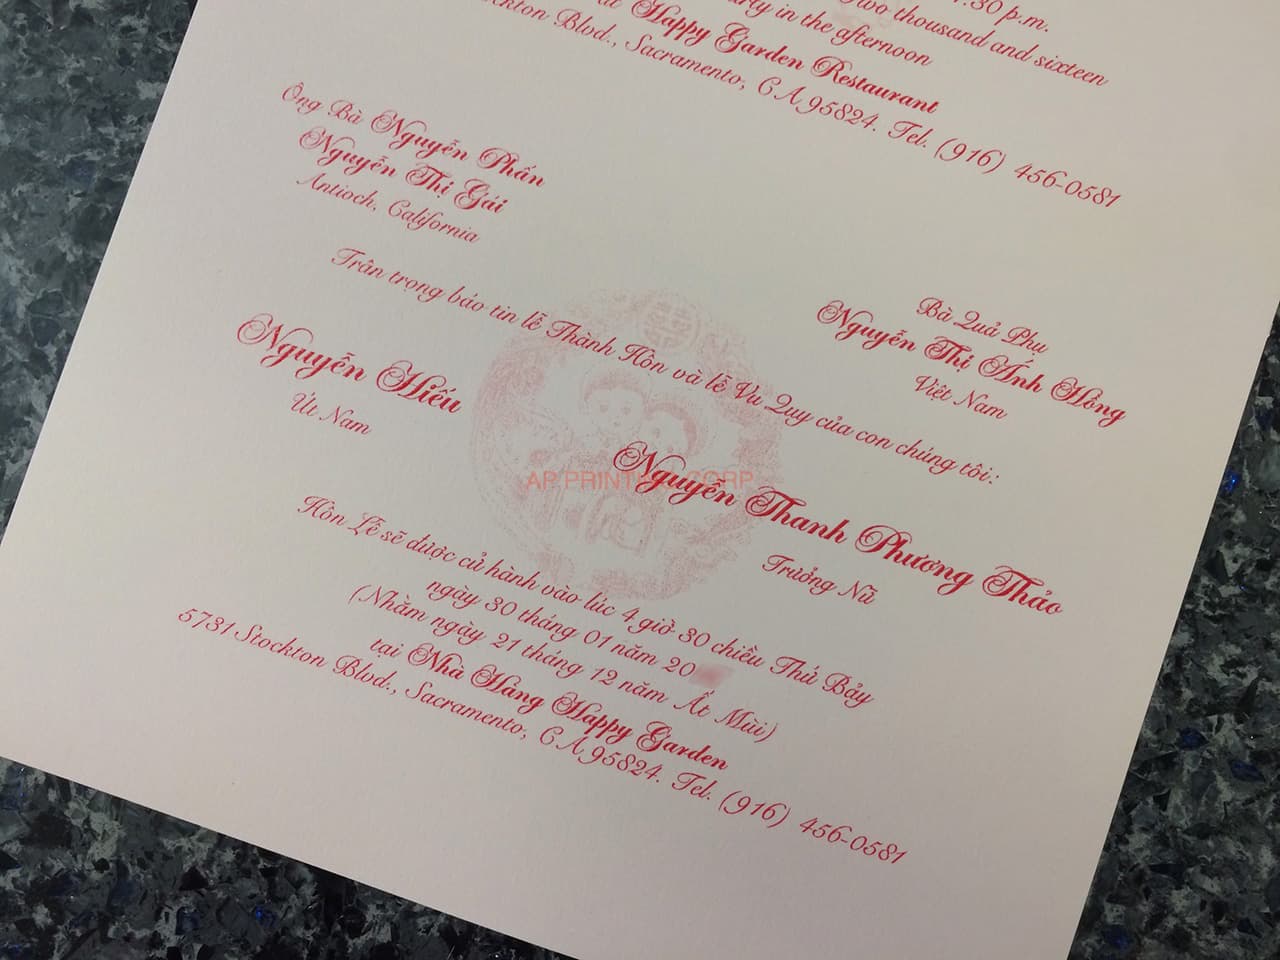 1:30 p.m.
Two thousand and sixteen
in the afternoon
at Happy Garden Restaurant
Stockton Blvd., Sacramento, CA 95824. Tel. (916) 456-0581
Ông Bà Nguyễn Phấn
Nguyễn Thị Gái
Antioch, California
Bà Quả Phụ
Nguyễn Thị Ánh Hồng
Việt Nam
Trân trọng báo tin lễ Thành Hôn và lễ Vu Quy của con chúng tôi:
Nguyễn Hiếu
Út Nam
Nguyễn Thanh Phương Thảo
Trưởng Nữ
AP PRINTING CORP
Hôn Lễ sẽ được cử hành vào lúc 4 giờ 30 chiều Thứ Bảy
ngày 30 tháng 01 năm 20
(Nhằm ngày 21 tháng 12 năm Ất Mùi)
tại Nhà Hàng Happy Garden
5731 Stockton Blvd., Sacramento, CA 95824. Tel. (916) 456-0581